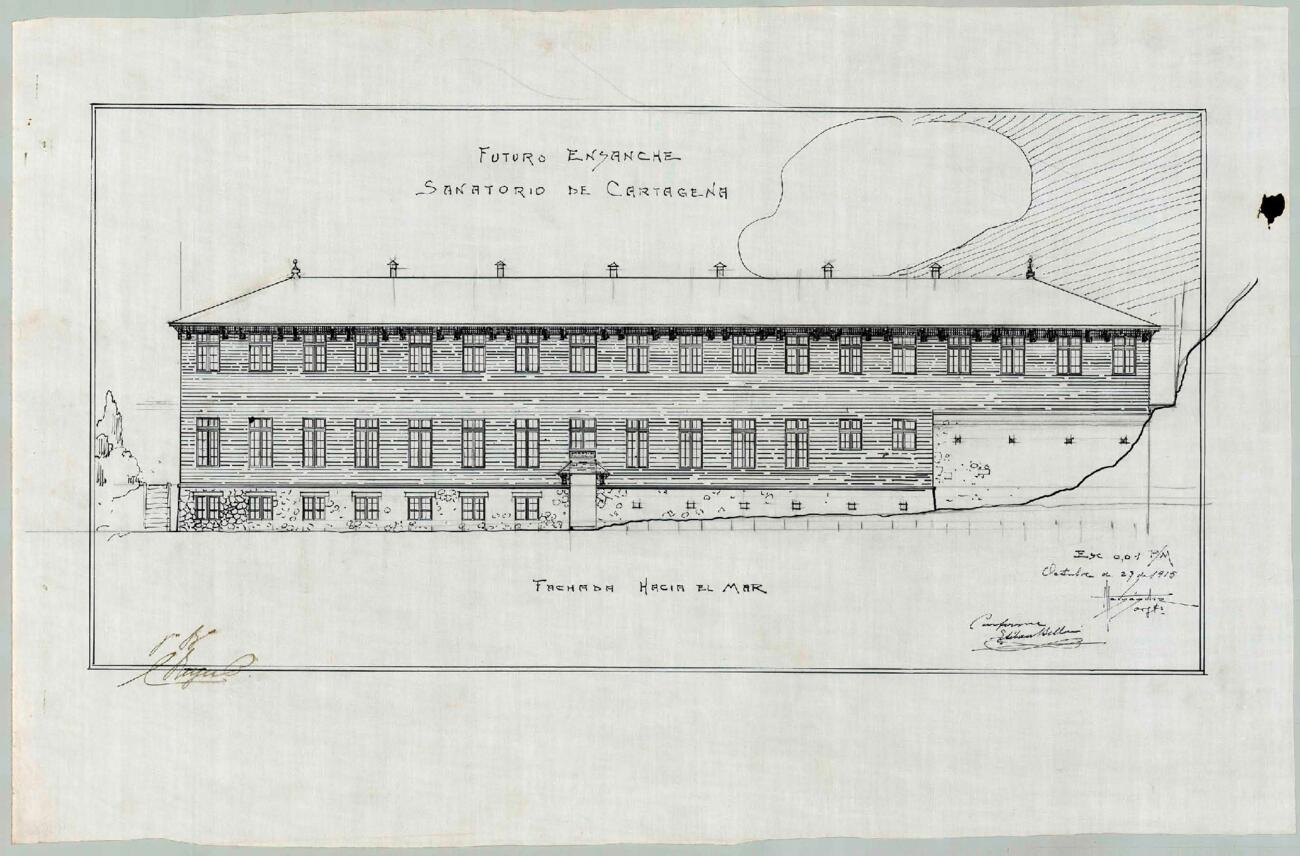 FUTURO ENSANCHE
SANATORIO DE CARTAGENA
FACHADA HACIA EL MAR
Esc 0,01 P/M
Octubre de 27 de 1915
Conforme